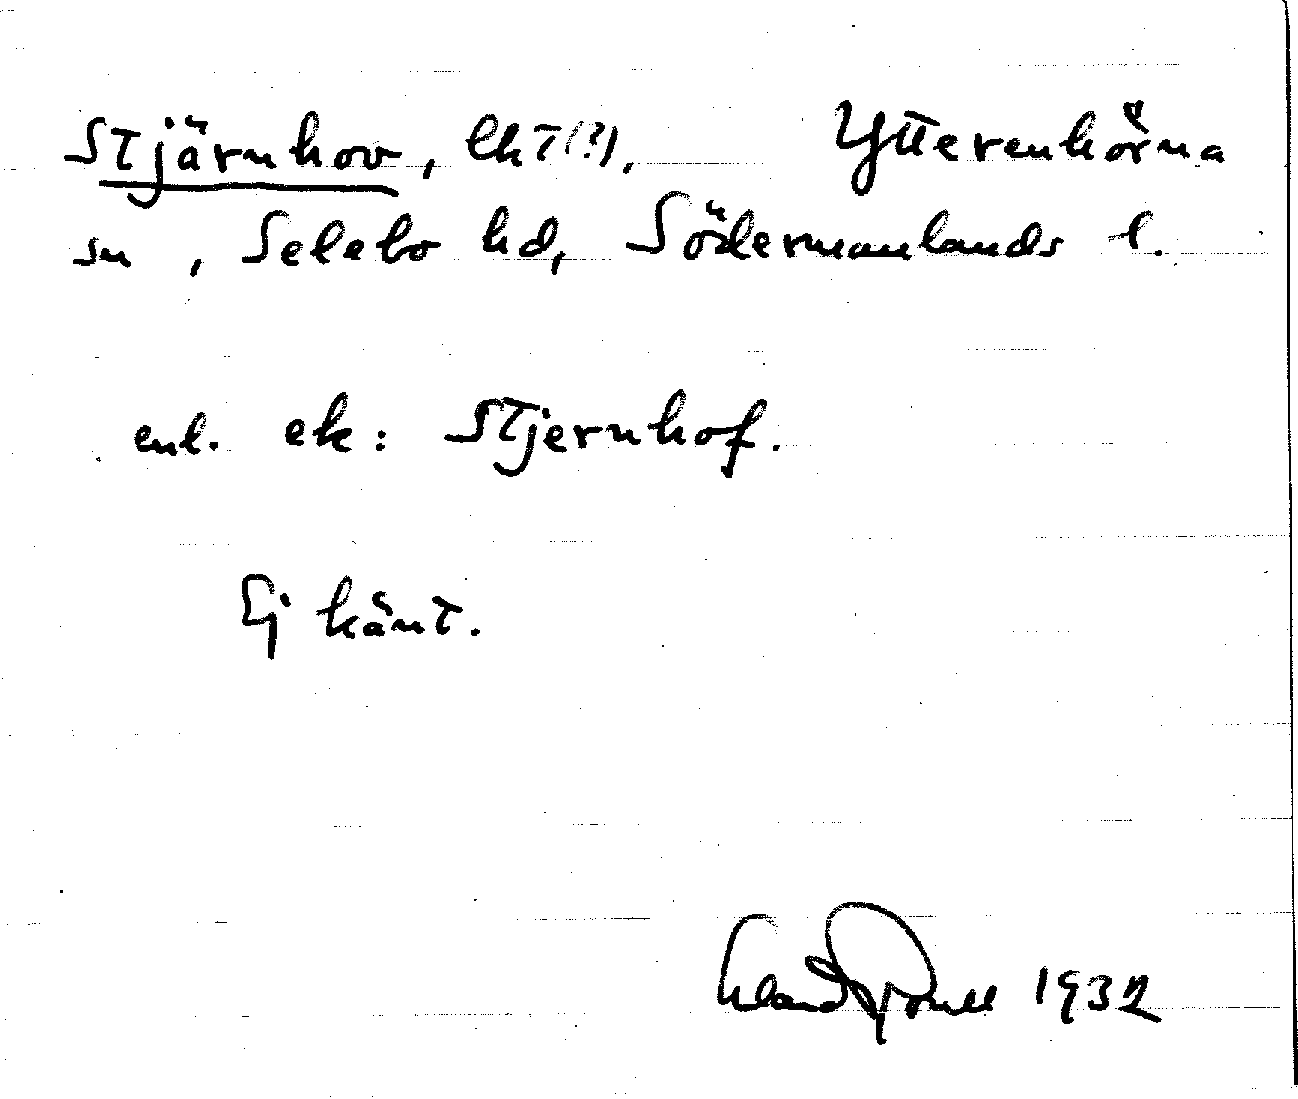 Stjärnhov, lht(?), Ytterenhörna
sn, Selebo hd, Södermanlands l.
enl. ek: Stjernhof.
Ej känt.
1932